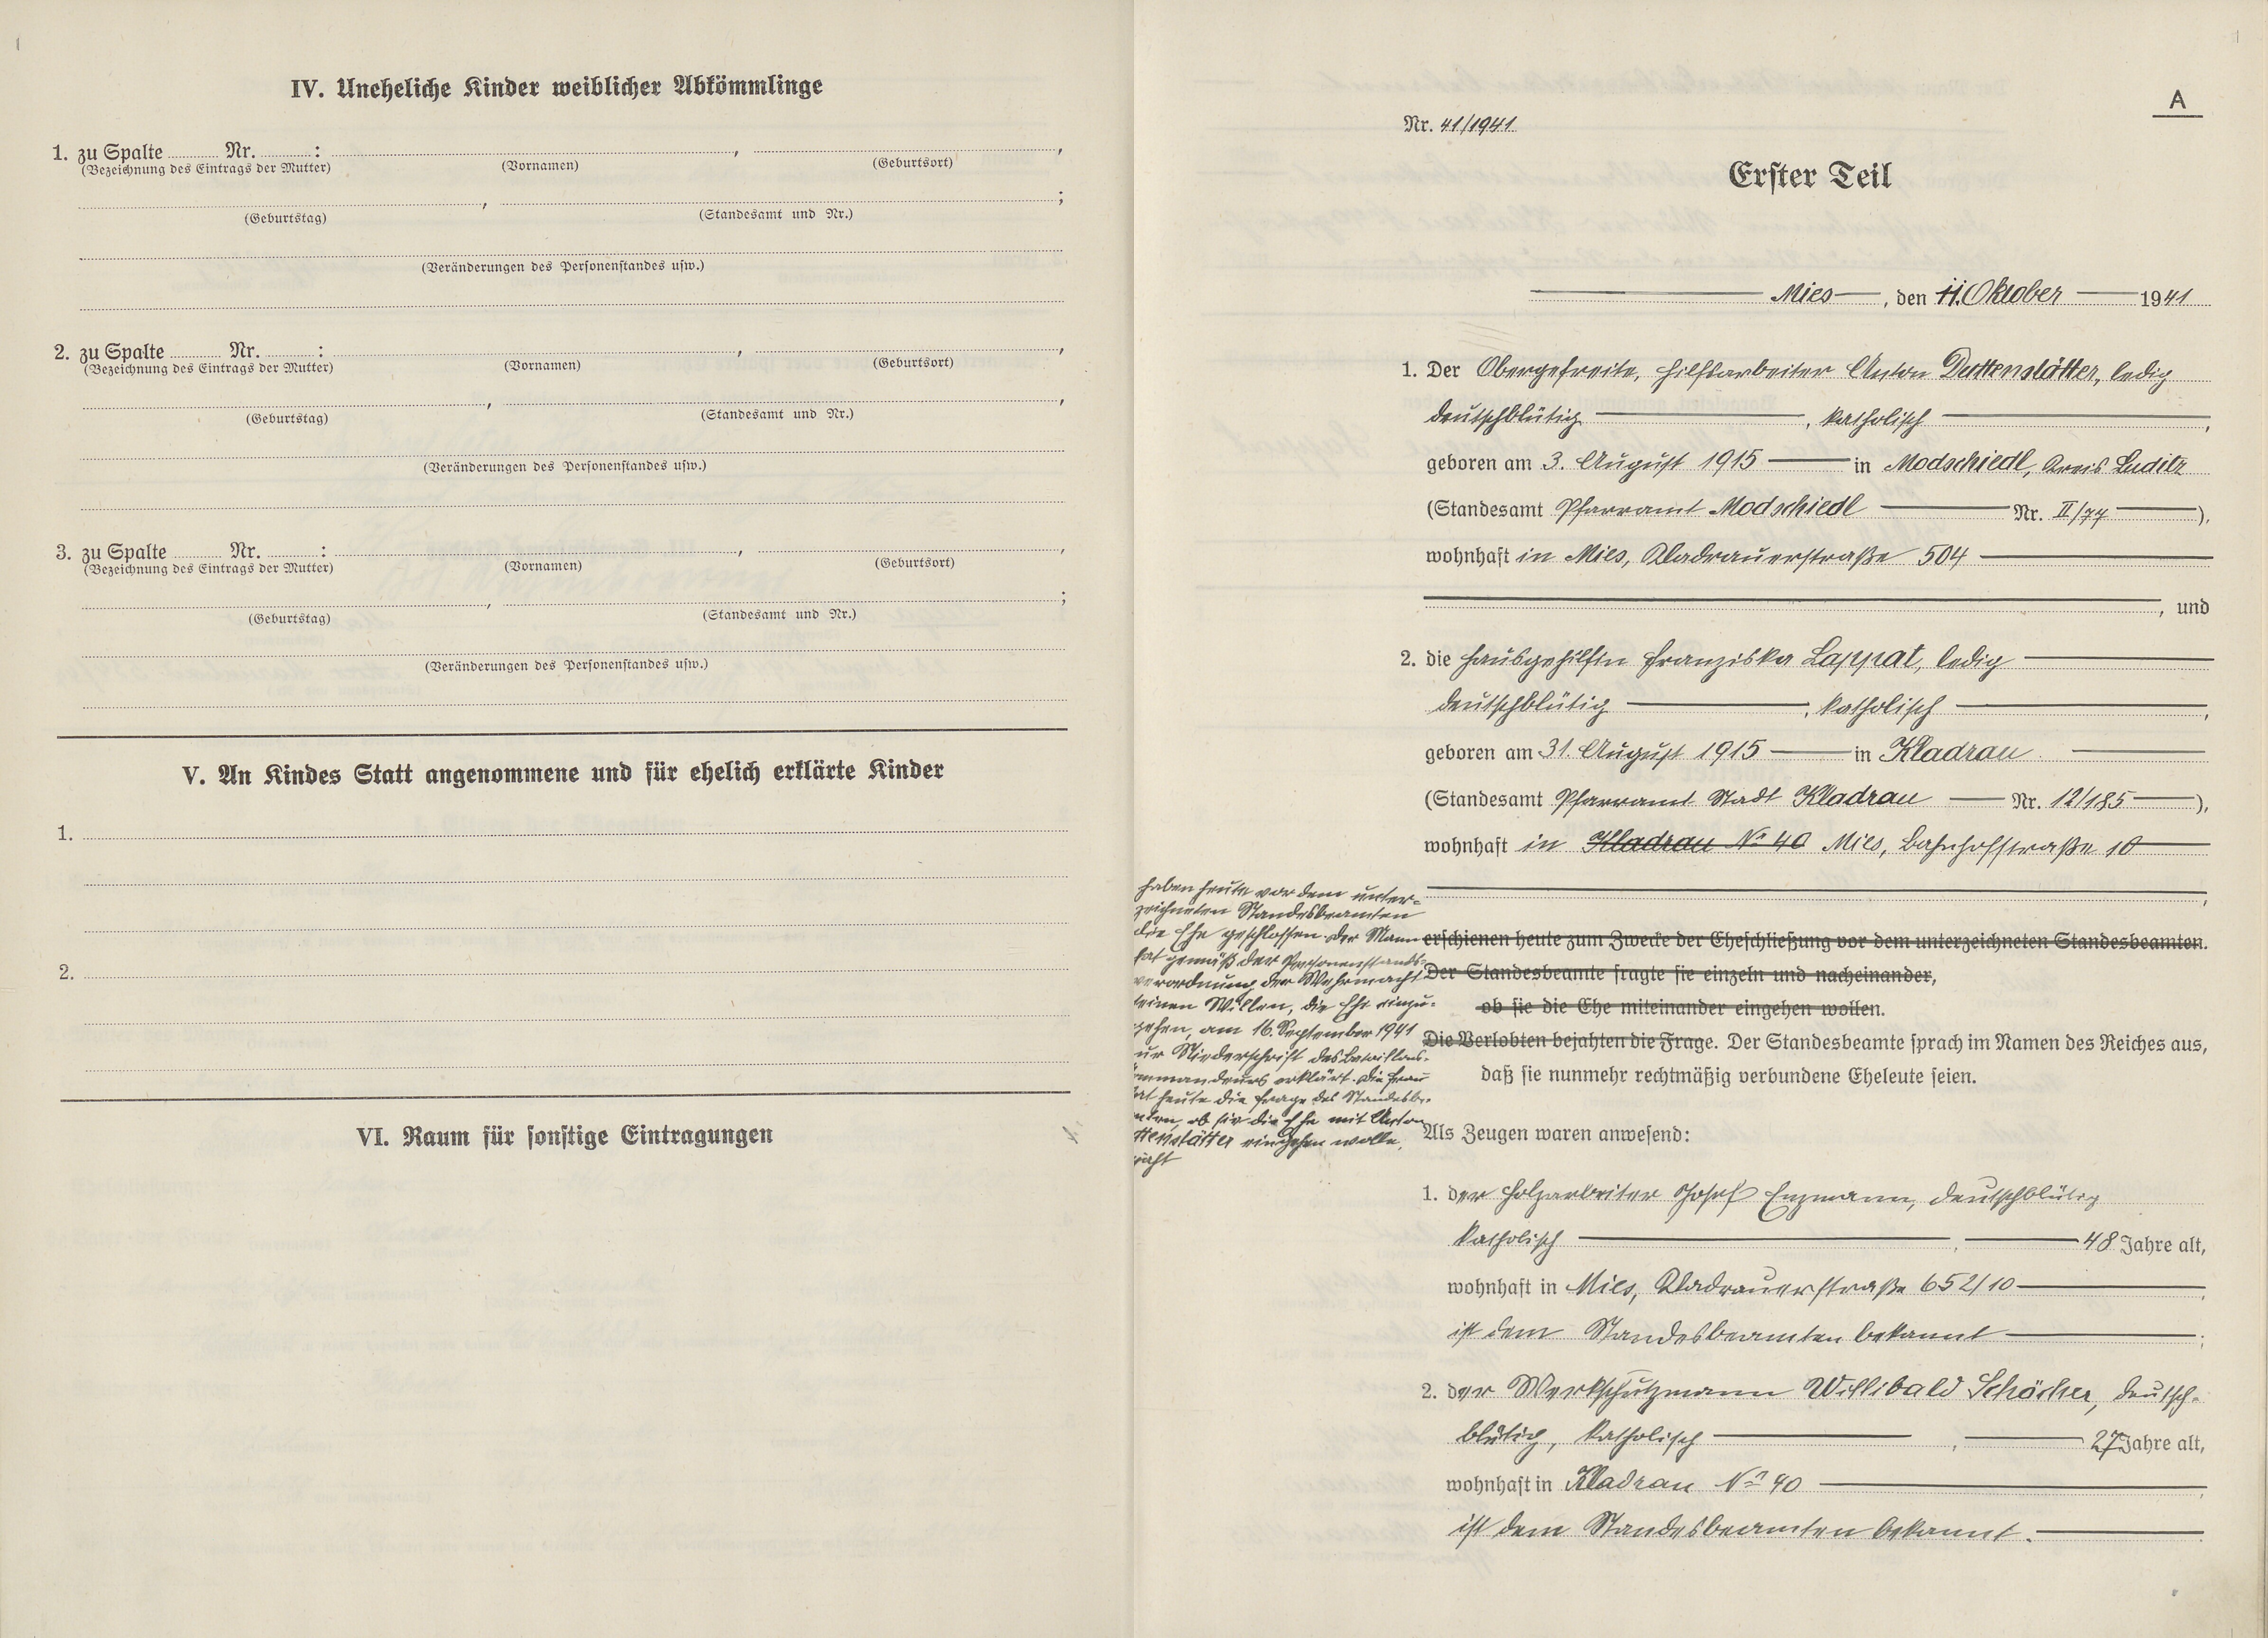 IV. Uneheliche Kinder weiblicher Abkömmlinge
1. zu Spalte Nr. : , ,
(Bezeichnung des Eintrags der Mutter) (Vornamen) (Geburtsort)
, ;
(Geburtstag) (Standesamt und Nr.)
(Veränderungen des Personenstandes usw.)
2. zu Spalte Nr. : , ,
(Bezeichnung des Eintrags der Mutter) (Vornamen) (Geburtsort)
, ;
(Geburtstag) (Standesamt und Nr.)
(Veränderungen des Personenstandes usw.)
3. zu Spalte Nr. : , ,
(Bezeichnung des Eintrags der Mutter) (Vornamen) (Geburtsort)
, ;
(Geburtstag) (Standesamt und Nr.)
(Veränderungen des Personenstandes usw.)
V. An Kindes Statt angenommene und für ehelich erklärte Kinder
1.
2.
VI. Raum für sonstige Eintragungen
A
Nr. 41/1941
Erster Teil
Mies, den 11. Oktober 1941
1. Der Obergefreite, Hilfsarbeiter Anton Duttenstätter, ledig
deutschblütig, katholisch,
geboren am 3. August 1915 in Modschiedl, Kreis Luditz
(Standesamt Pfarramt Modschiedl Nr. II/74),
wohnhaft in Mies, Kladrauerstraße 504
, und
2. die Hausgehilfin Franziska Lappat, ledig
deutschblütig, katholisch,
geboren am 31. August 1915 in Kladrau
(Standesamt Pfarramt Stadt Kladrau Nr. 12/185),
wohnhaft in Kladrau No 40 Mies, Bahnhofstraße 10
,
haben heute vor dem unter-
zeichneten Standesbeamten
die Ehe geschlossen. Der Mann
hat gemäß der Personenstands-
verordnung der Wehrmacht
seinen Willen, die Ehe einzu-
gehen, am 16. September 1941
ur Niederschrift des Bataillons-
mmandeurs erklärt. Die Frau
at heute die Frage des Standesbe-
mten, ob sie die Ehe mit Anton
ttenstätter eingehen wolle,
jaht
erschienen heute zum Zwecke der Eheschließung vor dem unterzeichneten Standesbeamten.
Der Standesbeamte fragte sie einzeln und nacheinander,
ob sie die Ehe miteinander eingehen wollen.
Die Verlobten bejahten die Frage. Der Standesbeamte sprach im Namen des Reiches aus,
daß sie nunmehr rechtmäßig verbundene Eheleute seien.
Als Zeugen waren anwesend:
1. der Holzarbeiter Josef Enzmann, deutschblütig
katholisch, 48 Jahre alt,
wohnhaft in Mies, Kladrauerstraße 652/10,
ist dem Standesbeamten bekannt;
2. der Werkschutzmann Willibald Schöcher, deutsch-
blütig, katholisch, 27 Jahre alt,
wohnhaft in Kladrau No 40,
ist dem Standesbeamten bekannt.